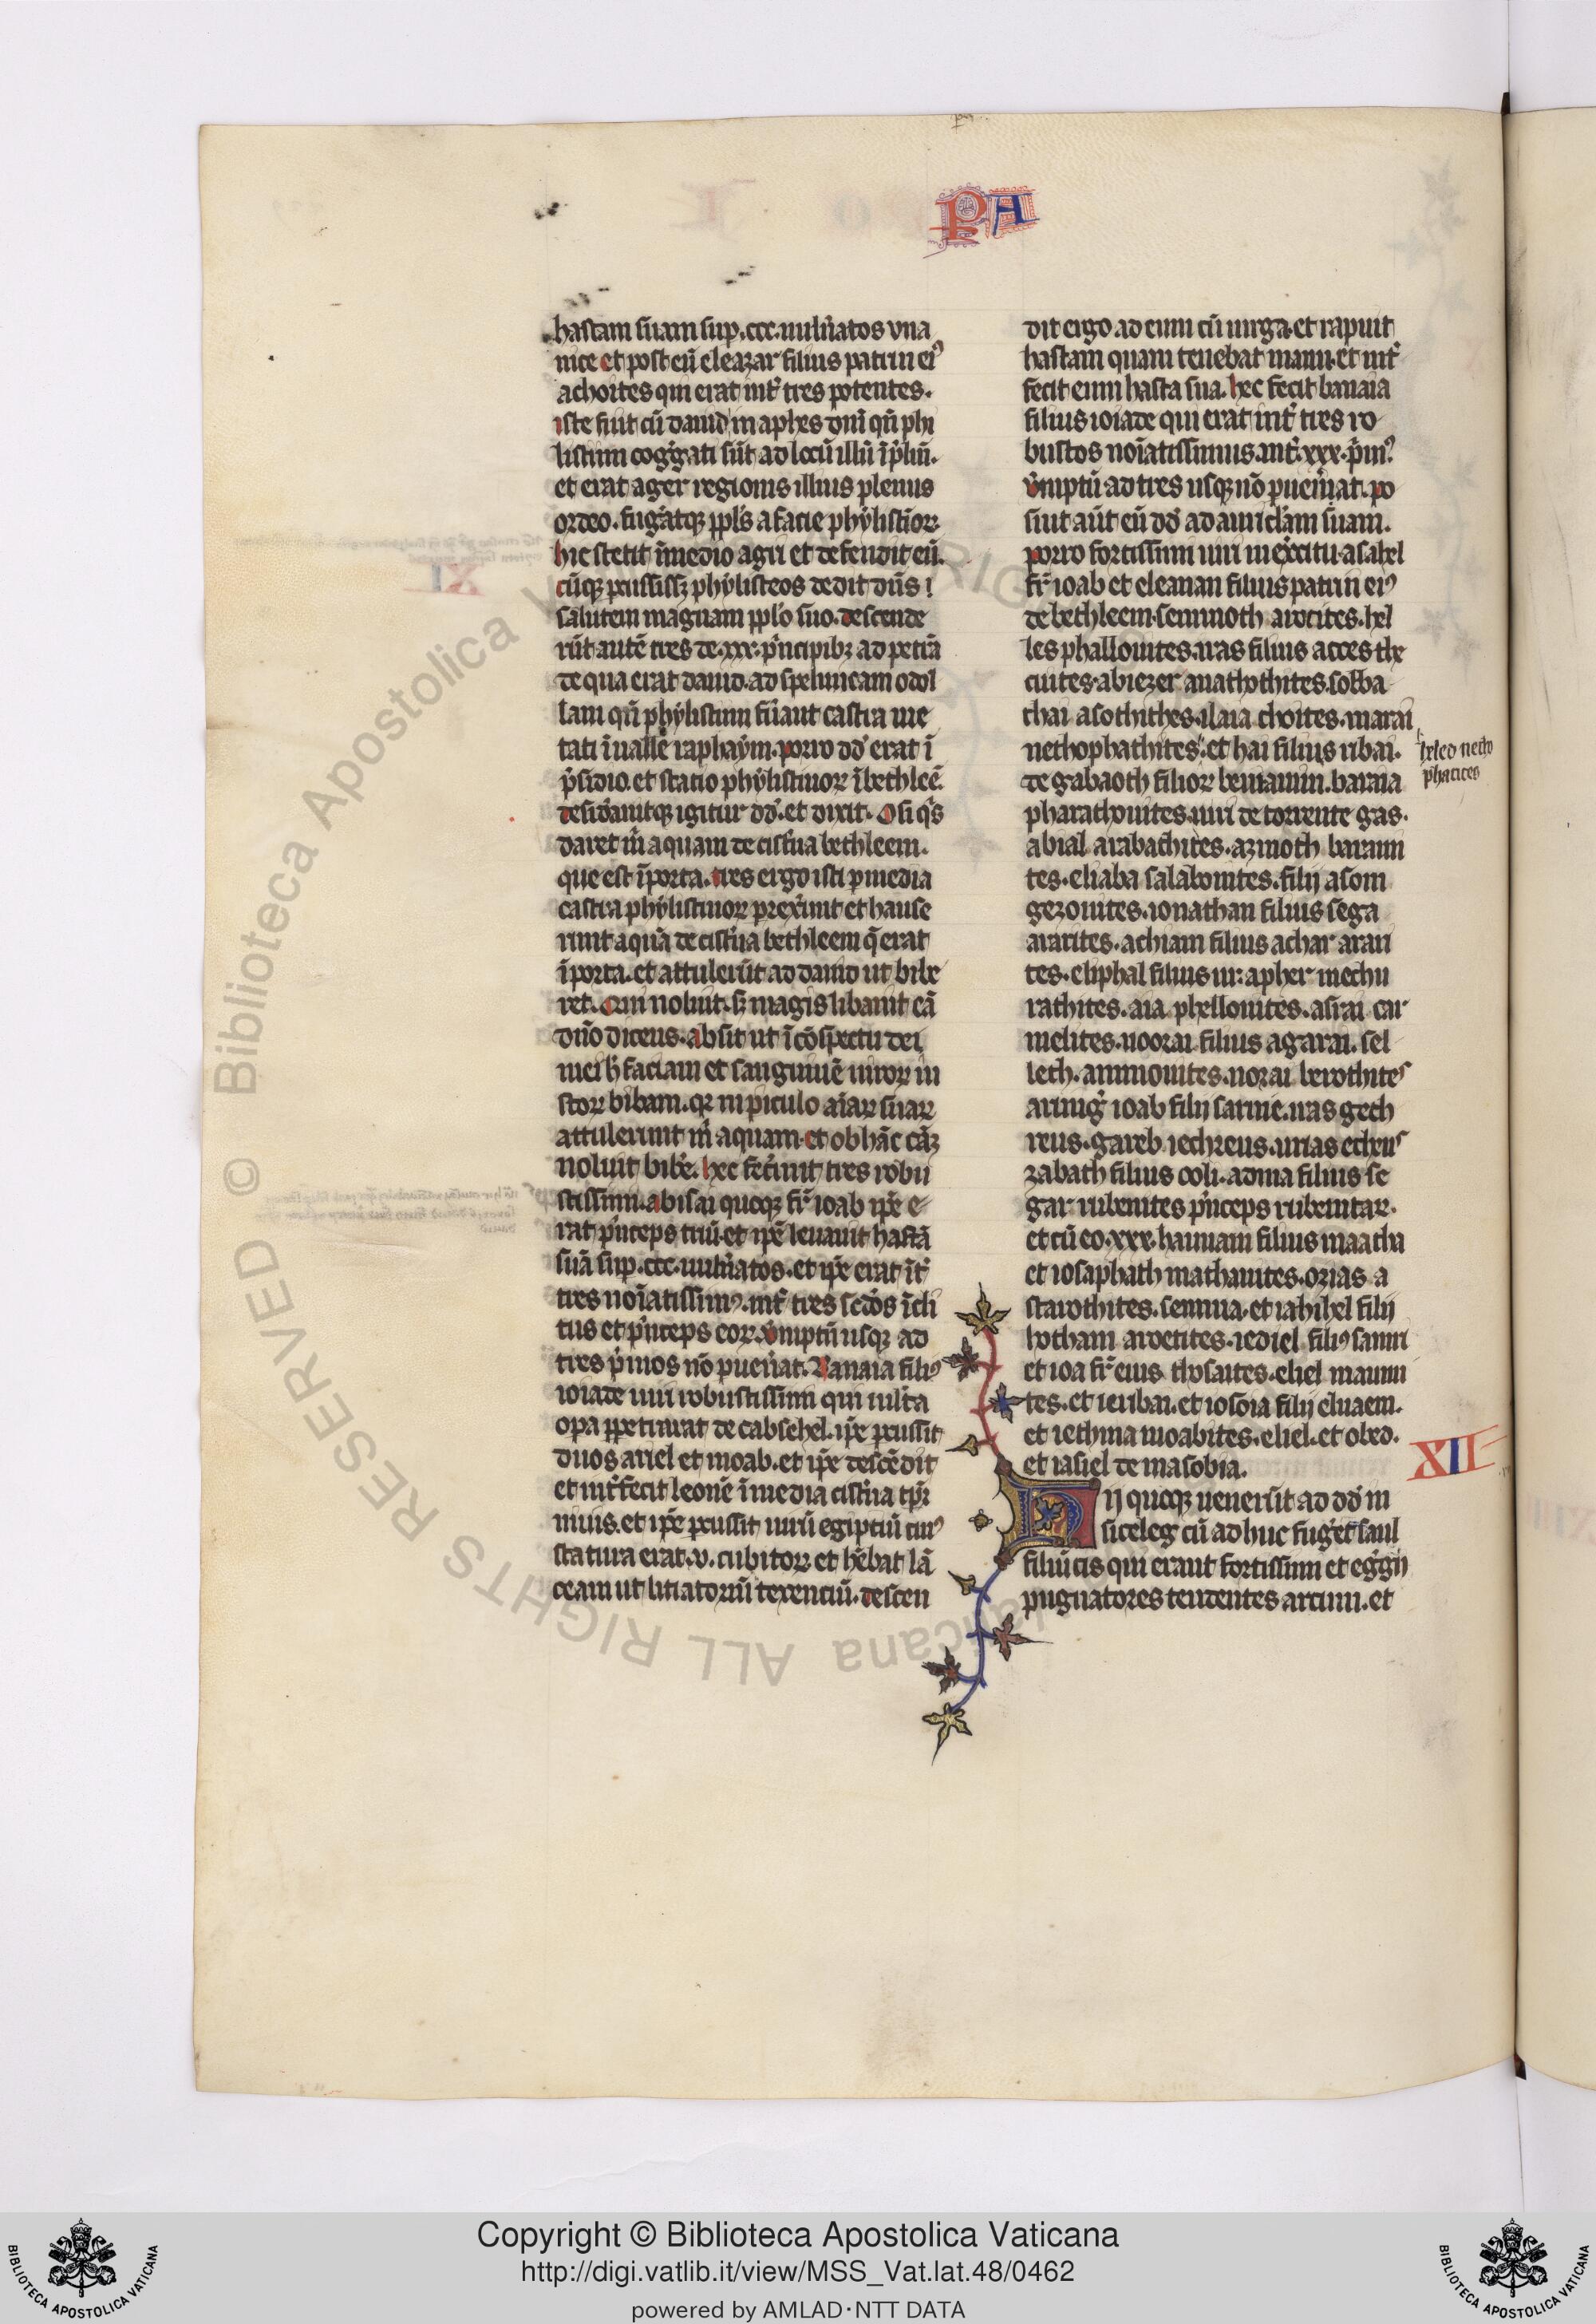 PA
hastam suam sup. ccc. uuln̄atos vna
uice et post eū eleazar filius patrui ei᾽
achoites qui erat int̄ tres potentes.
iste fuit cū dauid in aphes dn̄i qn̄ phi
listiim cogg̃ati sūt ad locū illū ī p̄liū.
et erat ager regionis illius plenus
ordeo. fug̃atq; ppl̄s a facie phylistīor̄
hic stetit ī medio agri et defendit eū.
cūq; pcussiss; phylisteos dedit dn̄s
salutem magnam pplo suo. descende
rūt autē tres de .xxx. p̄ncipib; ad petrā
de qua erat dauid. ad speluncam odol
lam qn̄ phylistiim fūant castra me
tati ī ualle raphaym. porro dd̄ erat ī
p̄sidio. et statio phylistinor̄ ī bethleē.
desid̄auitq; igitur dd̄. et dixit. O si q̄s
daret m̄ aquam de cist̄na bethleem.
que est ī porta. tres ergo isti p media
castra phylistinor̄ prexūnt et hause
runt aquā de cist̄na bethleem q̄ erat
ī porta. et attulerūt ad dauid ut bibe
ret. Qui noluit. s; magis libauit eā
dn̄o dicens. absit ut ī cōspectu dei
mei h̄ faciam et sanguinē uiror̄ iu
stor̄ bibam. qr in piculo aīar̄ suar̄
attulerunt m̄ aquam. et ob hāc cāz
noluit bibe᷑. hec fec̄unt tres robu
stissimi. abisai quoq; fr̄ ioab ip̄e e
rat p̄nceps triū. et ip̄e leuauit hastā
suā sup .ccc. uuln̄atos. et ip̄e erat īt̄
tres noīatissim᾽. int̄ tres sedōs īcli
tus et p̄nceps eor̄. v̄mptn̄ usq; ad
tres p̄mos nō puen̄at. Banaia fili᾽
ioiade uiri robustissimi qui mlt̄a
opa ppetrarat de cabsehel. ip̄e pcussit
duos ariel et moab. et ip̄e descēdit
et int̄fecit leonē ī media cist̄na tpr̄
niuis. et ip̄e pcussit uirū egiptiū cui᾽
statura erat .v. cubitor̄ et hēbat lā
ceam ut litiatoriū texenciū. descen
dit ergo ad eum cū uirga. et rapuit
hastam quam tenebat manu. et int̄
fecit eum hasta sua. hec fecit banaia
filius ioiade qui erat int̄ tres ro
bustos noīatissimus. int̄ .xxx. p̄m᾽
v̄mptn̄ ad tres usq; nō puen̄at. po
suit aūt eū dd̄ ad auriclam suam.
porro fortissimi uiri in ex̄citu. asahel
fr̄ ioab et eleanan filius patrui ei᾽
de bethleem. semmoth arorites. hel
les phallonites. uras filius acces the
cuites. abiezer anathothites. sobba
thai asothithes. ilaia choites. marai
nethophathites. et hai filius ribai.
heled netho
phatites
de gabaoth filior̄ beniamin. banaia
pharathonites. uiri de torrente gas.
abial arabathites. azmoth baraun
tes. eliaba salabonites. filij asom
gezonites. ionathan filius sega
ararites. achiam filius achar arari
tes. eliphal filius ur. apher mechu
rathites. aia phellonites. asrai car
melites. noorai filius agarai. sel
lech. ammonites. norai berothites
armig᷑ ioab filij saruie. uras geth
reus. gareb iethreus. urias etheus
zabath filius ooli. adina filius se
gar rubenites p̄nceps rubenitar̄.
et cū eo .xxx. hannam filius maacha
et iosaphath mathanites. ozias a
starothites. semma. et iahihel filij
hotham aroerites. iediel fili᾽ samri
et ioa fr̄ eius thosaites. eliel maumi
tes. et ieribai. et iosoia filij elnaem.
et iethma moabites. eliel. et obed.
et iasiel de masobia.
XII
Hij quoq; uenerūt ad dd̄ in
siceleg cū ad huc fuget᷑ saul
filiū cis qui erant fortissimi et egg̃ij
pugnatores tendentes arcum. et
Copyright © Biblioteca Apostolica Vaticana
http://digi.vatlib.it/view/MSS_Vat.lat.48/0462
powered by AMLAD·NTT DATA
BIBLIOTECA APOSTOLICA VATICANA
BIBLIOTECA APOSTOLICA VATICANA
© Biblioteca Apostolica Vaticana ALL RIGHTS RESERVED